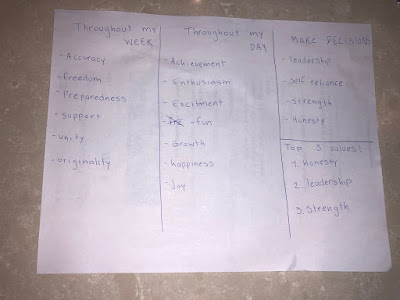 Throughout my
WEEK
- Accuracy
- freedom
- Preparedness
- support
- unity
- originality
Throughout my
DAY
- Achievement
- Enthusiasm
- Excitment
- fun
- Growth
- happiness
- Joy
MAKE DECISIONS
- leadership
- self reliance
- strength
- Honesty
Top 3 values!
1. Honesty
2. leadership
3. Strength